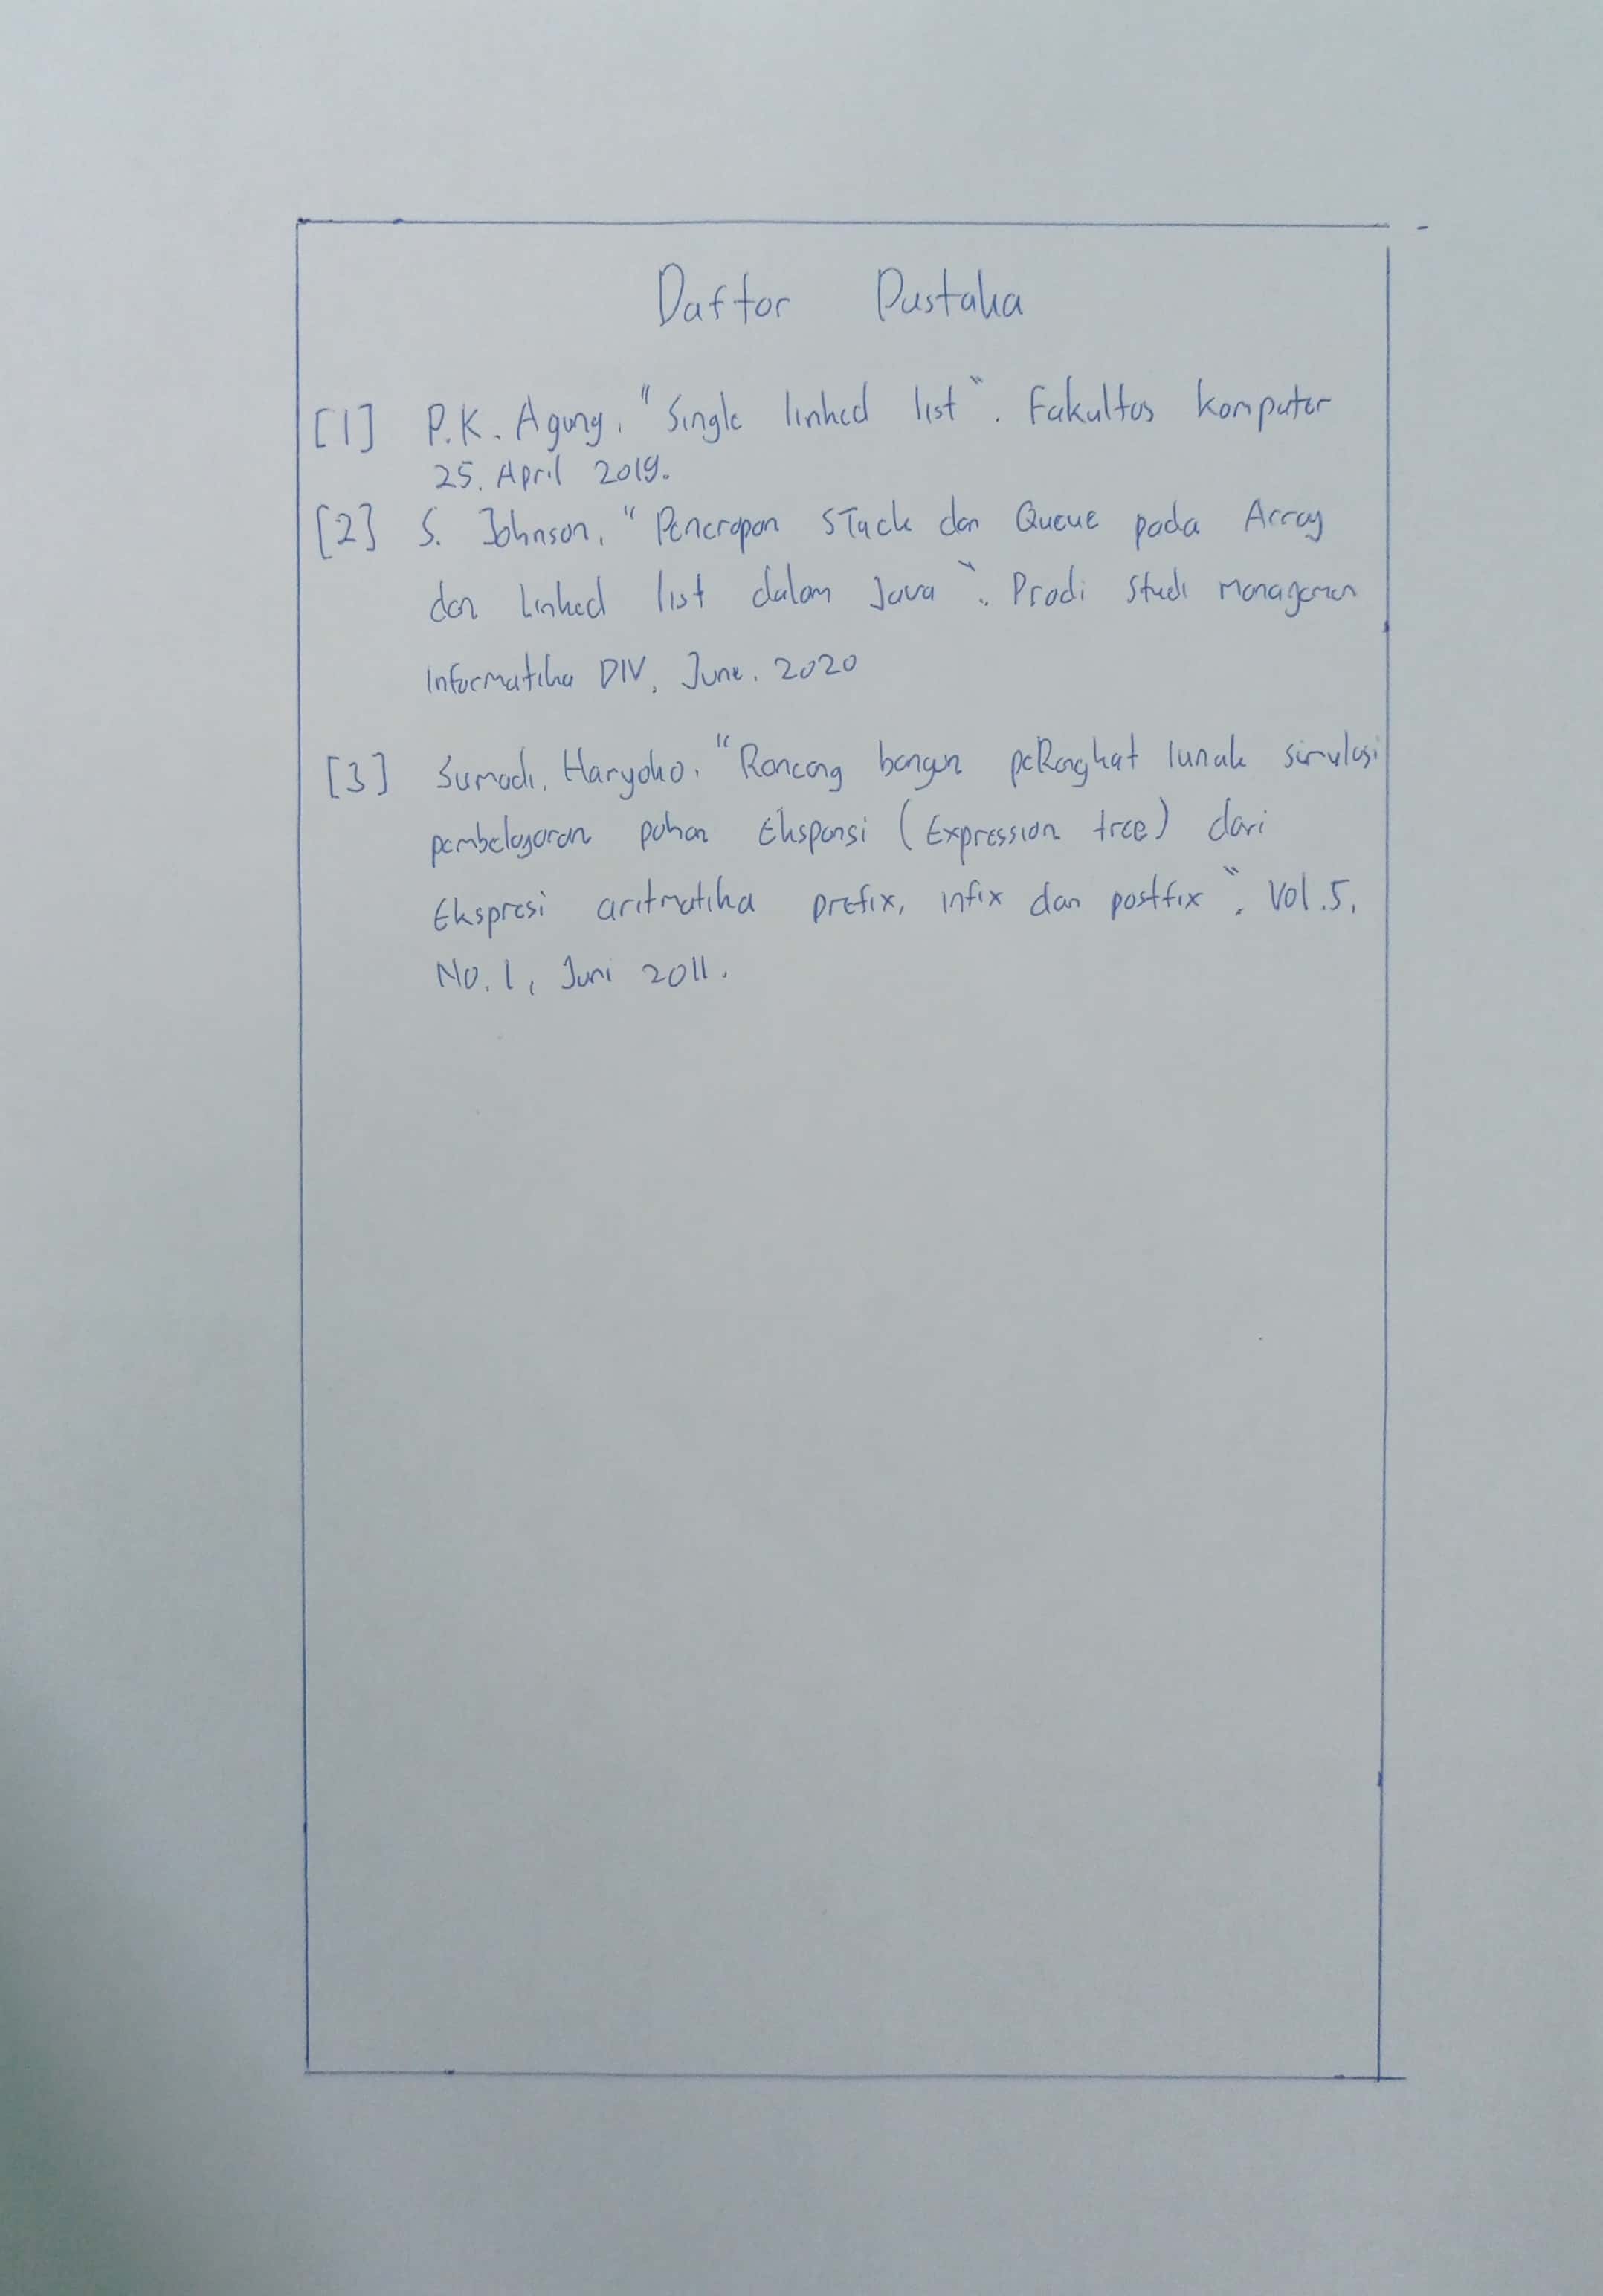 Daftar Pustaka
[1] P.K. Agung, "Single linked list". Fakultas komputer
25, April 2019.
[2] S. Johnson, "Penerapan STack dan Queue pada Array
dan Linked list dalam Java". Prodi Studi managemen
Informatika DIV, June, 2020
[3] Sumadi, Haryoko, "Rancang bangun peRangkat lunak simulasi
pembelajaran pohon Ekspansi (Expression tree) dari
Ekspresi aritmatika prefix, infix dan postfix". Vol.5,
No.1, Juni 2011.